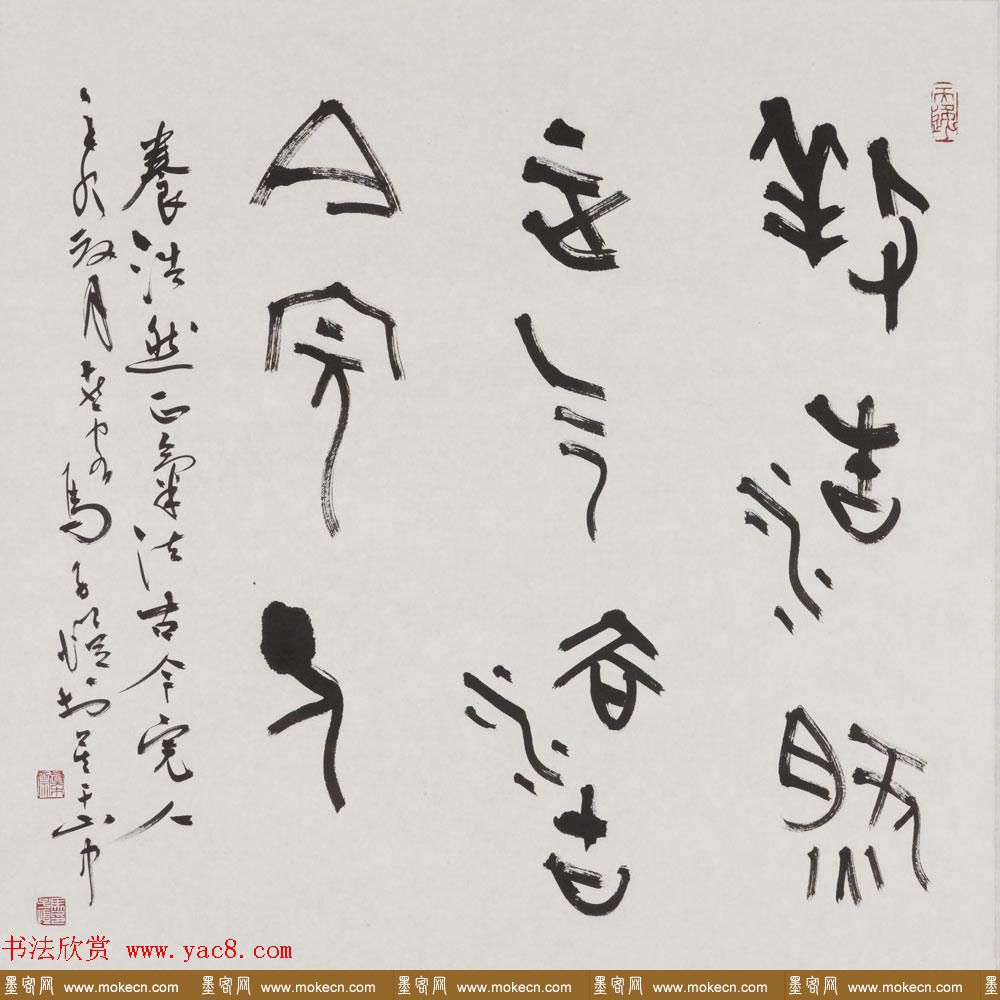 養浩然
正气法古
今完人
養浩然正氣法古今完人
月
馬子愷
山中
书法欣赏 www.yac8.com
墨客网 www.mokecn.com 墨客网 www.mokecn.com 墨客网 www.mokecn.com 墨客网 www.mokecn.com 墨客网 www.mokecn.com